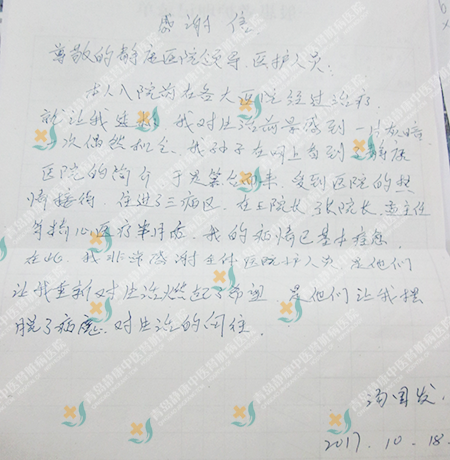 感谢信
尊敬的静康医院领导、医护人员:
本人入院前在各大医院经过治疗
就让我 我对生活前景感到一片灰暗
一次偶然机会,我终于在网上看到 静康
医院的简介 于是 来,受到医院的热
情接待,住进了三病区,在王院长 张院长、 主任
等精心医疗 后,我的病情已基本 ,
在此,我非常感谢全体医院护人员,是他们
让我重新对生活燃起了希望,是他们让我摆
脱了病魔,对生活的向往.
汤国发.
2017.10.18.
青岛静康中医肾病医院